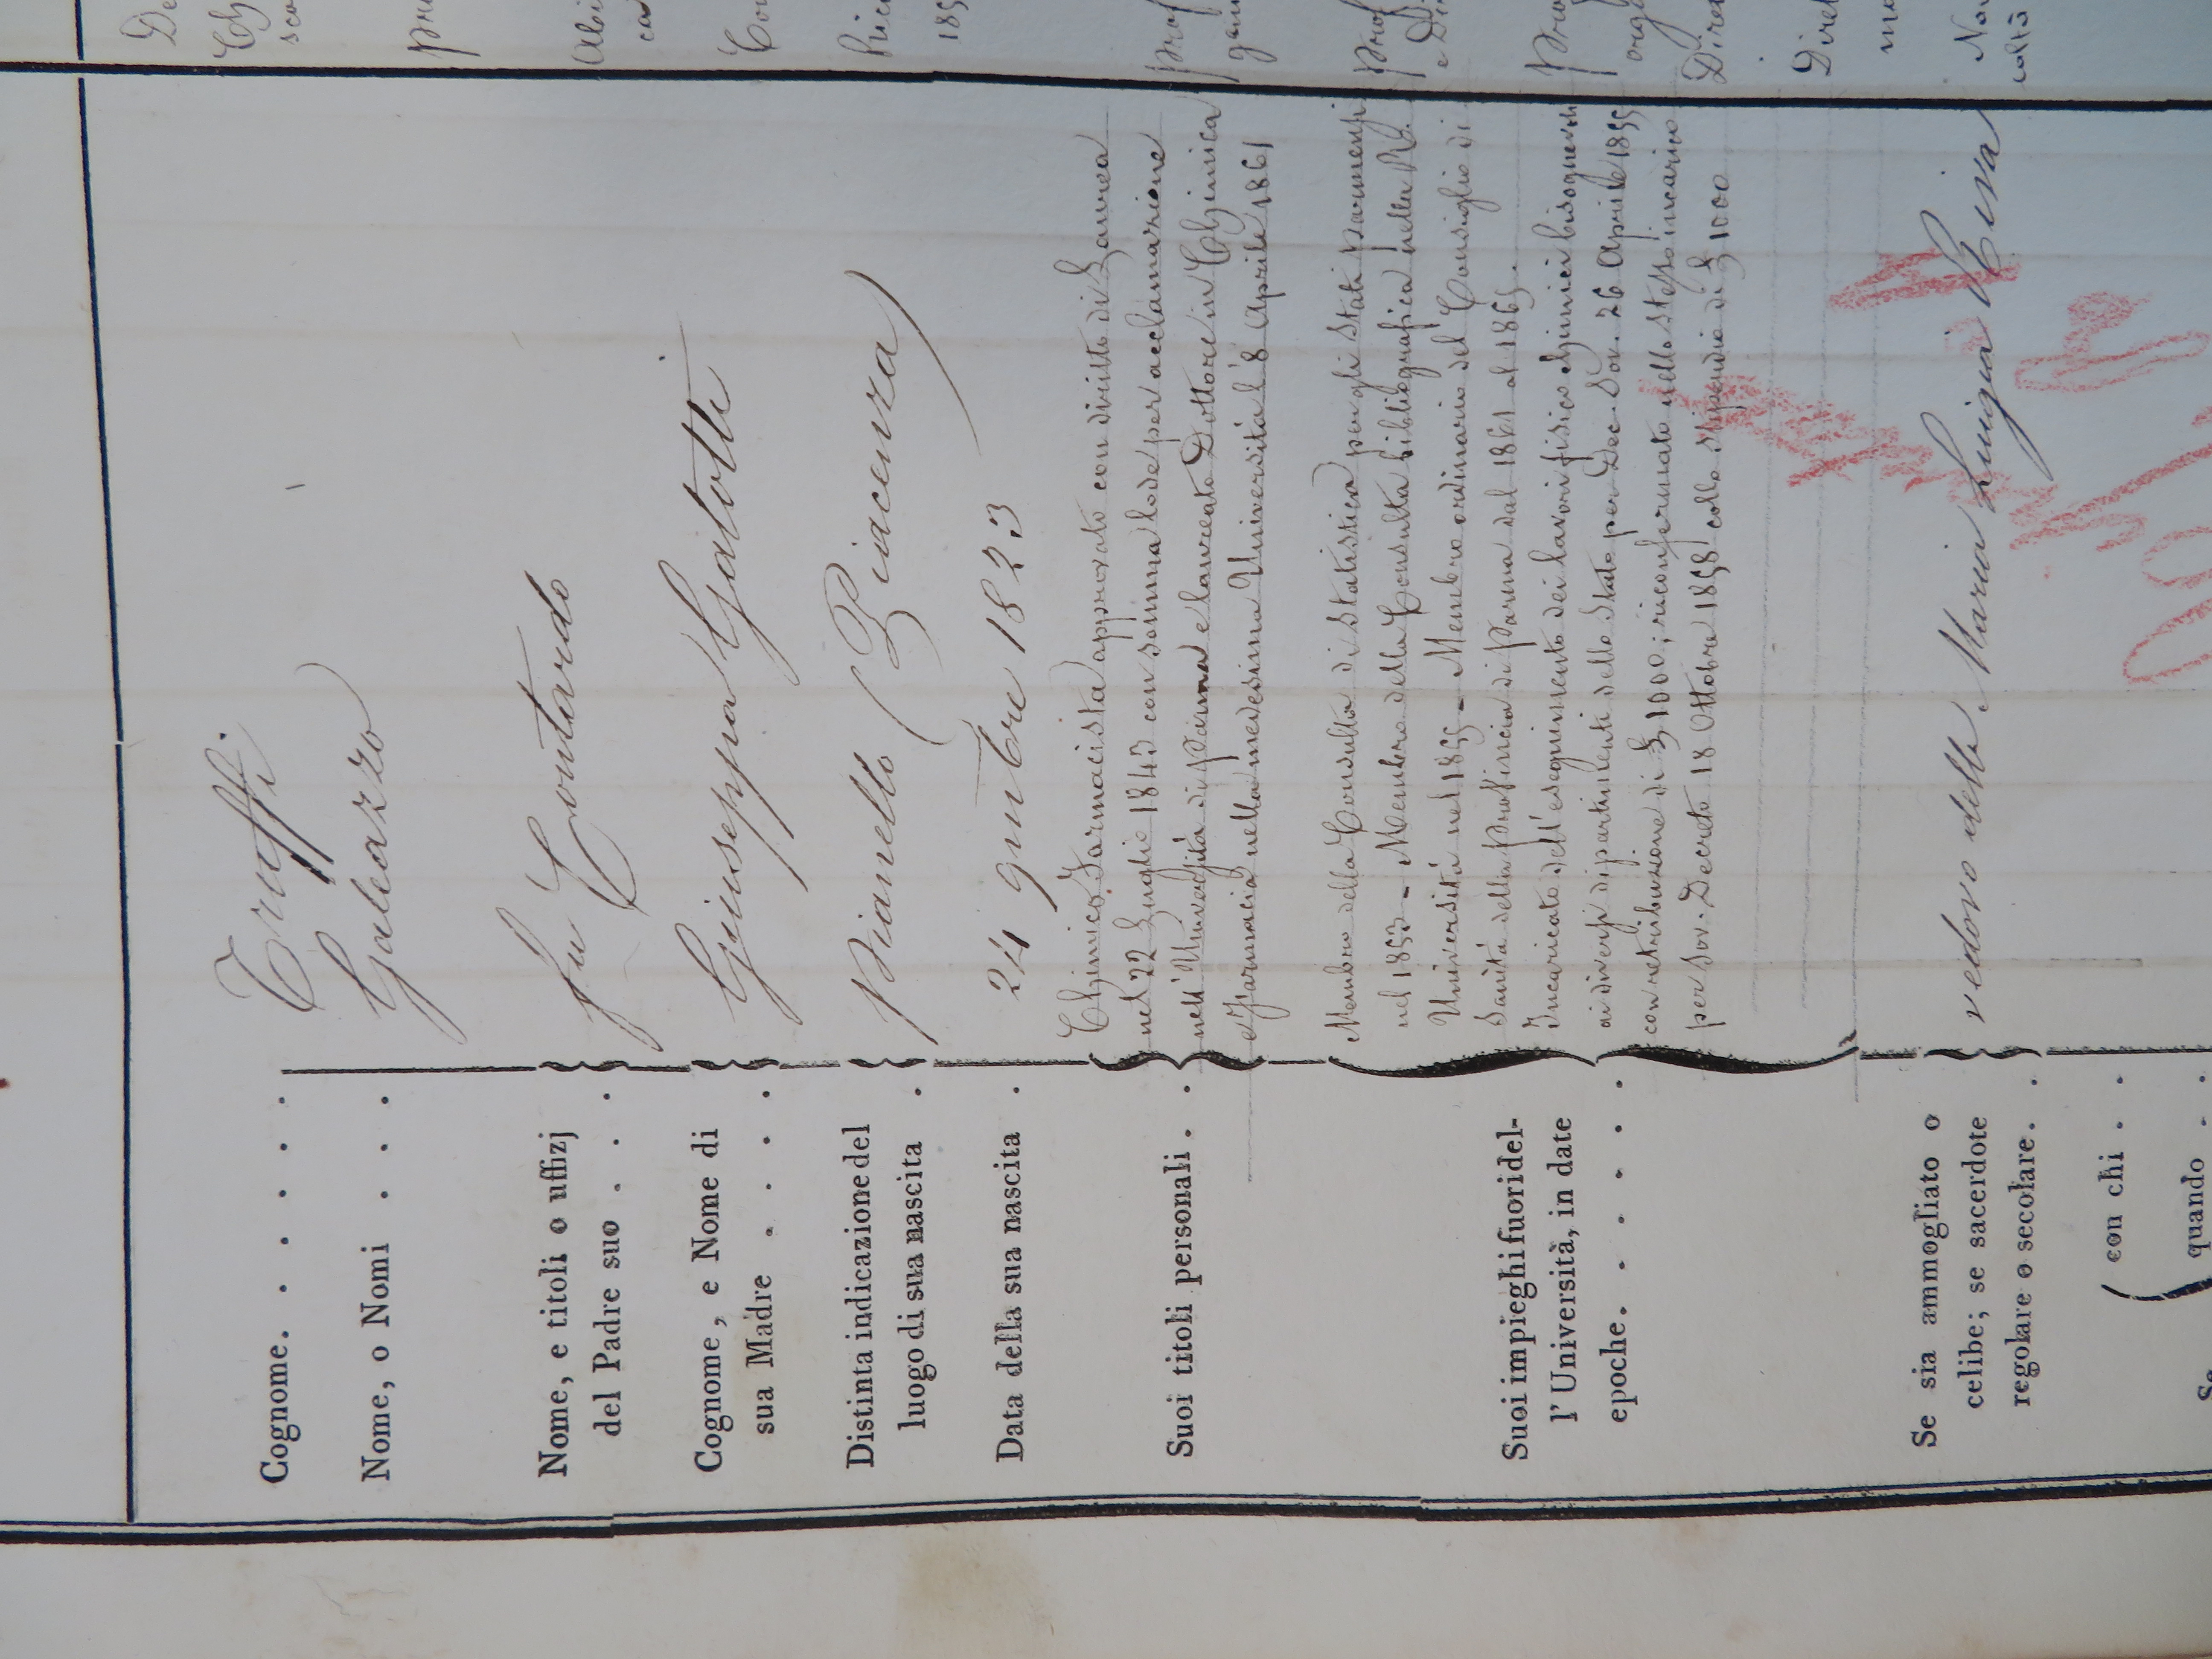 Cognome. . . . . .
Truffi.
Nome, o Nomi . . . .
Galeazzo
Nome, e titoli o uffizj
del Padre suo . . . .
fu Contardo
Cognome, e Nome di
sua Madre . . . . .
Giuseppa Galotti
Distinta indicazione del
luogo di sua nascita .
Pianello (Piacenza)
Data della sua nascita .
24 9mbre 1823
Suoi titoli personali . .
Chimico Farmacista approvato con diritto di Laurea
nel 22 Luglio 1843 con somma lode per acclamazione
nell'Università di Parma e laureato Dottore in Chimica
e Farmacia nella medesima Università l'8 Aprile 1861
Suoi impieghi fuori del-
l' Università, in date
epoche. . . . . . .
Membro della Consulta di Statistica per gli Stati parmensi
nel 1853 - Membro della Consulta bibliografica nella Ra.
Università nel 1855 - Membro ordinario del Consiglio di
Sanità della Provincia di Parma dal 1861 al 1865.
Incaricato dell'eseguimento dei lavori fisico chimici bisognevoli
ai diversi dipartimenti dello Stato per Dec. Sov. 26 Aprile 1855
con retribuzione di £ 1000; riconfermato nello stesso incarico
per Sov. Decreto 18 Ottobre 1858 collo stipendio di £ 1000
Se sia ammogliato o
celibe; se sacerdote
regolare o secolare. .
vedovo della Maria Luigia Riva
( con chi . .
( quando . .
De
Ch
prof
Direz
Diret